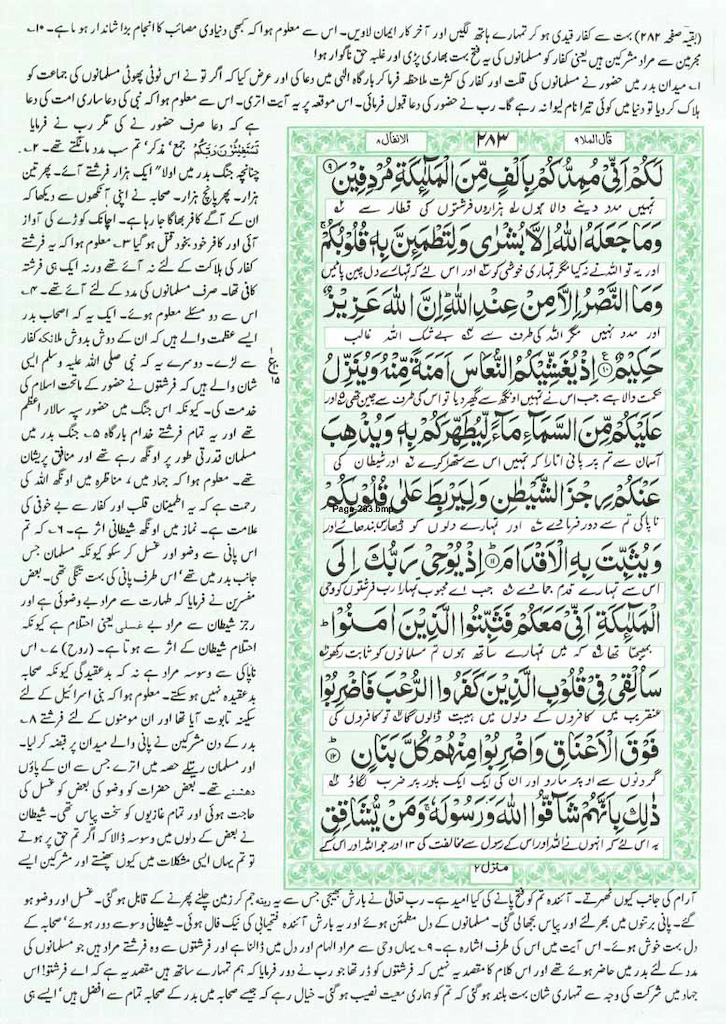 (بقیہ صفحہ ۲۸۲) بہت سے کفار قیدی ہو کر تمہارے ہاتھ لگیں اور آخر کار ایمان لاویں۔ اس سے معلوم ہوا کہ کبھی دنیاوی مصائب کا انجام بڑا شاندار ہوتا ہے۔ ۱۰۔
مجرمین سے مراد مشرکین ہیں یعنی کفار کو مسلمانوں کی یہ فتح بہت بھاری پڑی اور غلبہ حق ناگوار ہوا
۱۔ میدان بدر میں حضور نے مسلمانوں کی قلت اور کفار کی کثرت ملاحظہ فرما کر بارگاہ الٰہی میں دعا کی اور عرض کیا کہ اگر تو نے اس ٹوٹی پھوٹی مسلمانوں کی جماعت کو
ہلاک کر دیا تو دنیا میں کوئی تیرا نام لیوا نہ رہے گا۔ رب نے حضور کی دعا قبول فرمائی۔ اس موقعہ پر یہ آیت اتری۔ اس سے معلوم ہوا کہ نبی کی دعا ساری امت کی دعا
قال الملا ۹
۲۸۳
الانفال ۸
لَكُمْ اَنِّیْ مُمِدُّكُمْ بِاَلْفٍ مِّنَ الْمَلٰٓىِٕكَةِ مُرْدِفِیْنَ ۹
تمہیں مدد دینے والا ہوں ہزاروں فرشتوں کی قطار سے
وَمَا جَعَلَهُ اللّٰهُ اِلَّا بُشْرٰى وَلِتَطْمَىِٕنَّ بِهٖ قُلُوْبُكُمْ
اور یہ تو اللہ نے نہ کیا مگر تمہاری خوشی کو اور اس لئے کہ تمہارے دل چین پائیں
وَمَا النَّصْرُ اِلَّا مِنْ عِنْدِ اللّٰهِ اِنَّ اللّٰهَ عَزِیْزٌ
اور مدد نہیں مگر اللہ کی طرف سے بے شک اللہ غالب
حَكِیْمٌ ۱۰ اِذْ یُغَشِّیْكُمُ النُّعَاسَ اَمَنَةً مِّنْهُ وَیُنَزِّلُ
حکمت والا ہے جب اس نے تمہیں اونگھ سے گھیر دیا تو اس کی طرف سے چین تھی اور
عَلَیْكُمْ مِّنَ السَّمَآءِ مَآءً لِّیُطَهِّرَكُمْ بِهٖ وَیُذْهِبَ
آسمان سے تم پر پانی اتارا کہ تمہیں اس سے ستھرا کرے اور شیطان کی
عَنْكُمْ رِجْزَ الشَّیْطٰنِ وَلِیَرْبِطَ عَلٰى قُلُوْبِكُمْ
Page-283.bmp
ناپاکی تم سے دور فرمادے اور تمہارے دلوں کو ڈھارس بندھائے اور
وَیُثَبِّتَ بِهِ الْاَقْدَامَ ۱۱ اِذْ یُوْحِیْ رَبُّكَ اِلَى
اس سے تمہارے قدم جمادے جب اے محبوب تمہارا رب فرشتوں کو وحی
الْمَلٰٓىِٕكَةِ اَنِّیْ مَعَكُمْ فَثَبِّتُوا الَّذِیْنَ اٰمَنُوْا
بھیجتا تھا کہ میں تمہارے ساتھ ہوں تم مسلمانوں کو ثابت رکھو
سَاُلْقِیْ فِیْ قُلُوْبِ الَّذِیْنَ كَفَرُوا الرُّعْبَ فَاضْرِبُوْا
عنقریب میں کافروں کے دلوں میں ہیبت ڈالوں گا تو کافروں کی
فَوْقَ الْاَعْنَاقِ وَاضْرِبُوْا مِنْهُمْ كُلَّ بَنَانٍ ۱۲
گردنوں سے اوپر مارو اور ان کی ایک ایک پور پر ضرب لگاؤ
ذٰلِكَ بِاَنَّهُمْ شَآقُّوا اللّٰهَ وَرَسُوْلَهٗ وَمَنْ یُّشَاقِقِ
یہ اس لئے کہ انہوں نے اللہ اور اس کے رسول سے مخالفت کی ۱۳ اور جو اللہ اور اس کے
منزل ۲
ع
۱۵
ہے کہ دعا صرف حضور نے کی مگر رب نے فرمایا
تَسْتَغِيْثُوْنَ رَبَّكُمْ جمع' مذکر' تم سب مدد مانگتے تھے۔ ۲۔
چنانچہ جنگ بدر میں اولا" ایک ہزار فرشتے آئے۔ پھر تین
ہزار۔ پھر پانچ ہزار۔ صحابہ نے اپنی آنکھوں سے دیکھا کہ
ان کے آگے کافر بھاگا جا رہا ہے۔ اچانک کوڑے کی آواز
آئی اور کافر خود بخود قتل ہو گیا ۳۔ معلوم ہوا کہ یہ فرشتے
کفار کی ہلاکت کے لئے نہ آئے تھے ورنہ ایک ہی فرشتہ
کافی تھا۔ صرف مسلمانوں کی مدد کے لئے آئے تھے۔ ۴۔
اس سے دو مسئلے معلوم ہوئے۔ ایک یہ کہ اصحاب بدر
ایسے عظمت والے ہیں کہ ان کے دوش بدوش ملائکہ کفار
سے لڑے۔ دوسرے یہ کہ نبی صلی اللہ علیہ وسلم ایسی
شان والے ہیں کہ فرشتوں نے حضور کے ماتحت اسلام کی
خدمت کی۔ کیونکہ اس جنگ میں حضور سپہ سالار اعظم
تھے اور یہ تمام فرشتے خدام بارگاہ ۵۔ جنگ بدر میں
مسلمان قدرتی طور پر اونگھ رہے تھے اور منافق پریشان
تھے۔ معلوم ہوا کہ جہاد میں، مناظرہ میں اونگھ اللہ کی
رحمت ہے کہ یہ اطمینان قلب اور کفار سے بے خوفی کی
علامت ہے۔ نماز میں اونگھ شیطانی اثر ہے۔ ۶۔ کہ تم
اس پانی سے وضو اور غسل کر سکو کیونکہ مسلمان جس
جانب بدر میں تھے' اس طرف پانی کی بہت تنگی تھی۔ بعض
مفسرین نے فرمایا کہ طہارت سے مراد بے وضوئی ہے اور
رجز شیطان سے مراد بے غسلی یعنی احتلام ہے کیونکہ
احتلام شیطان کے اثر سے ہوتا ہے۔ (روح) ۷۔ اس
ناپاکی سے وسوسہ مراد ہے نہ کہ بدعقیدگی کیونکہ صحابہ
بدعقیدہ نہیں ہو سکتے۔ معلوم ہوا کہ بنی اسرائیل کے لئے
سکینہ تابوت آیا تھا اور ان مومنوں کے لئے فرشتے ۸۔
بدر کے دن مشرکین نے پانی والے میدان پر قبضہ کر لیا۔
اور مسلمان ریتلے حصہ میں اترے جس سے ان کے پاؤں
دھنستے تھے۔ بعض حضرات کو وضو کی بعض کو غسل کی
حاجت ہوئی اور تمام غازیوں کو سخت پیاس تھی۔ شیطان
نے بعض کے دلوں میں وسوسہ ڈالا کہ اگر تم حق پر ہوتے
تو تم یہاں ایسی مشکلات میں کیوں پھنستے اور مشرکین ایسے
آرام کی جانب کیوں ٹھہرتے۔ آئندہ تم کو فتح پانے کی کیا امید ہے۔ رب تعالیٰ نے بارش بھیجی جس سے یہ ریتہ جم کر زمین چلنے پھرنے کے قابل ہو گئی۔ غسل اور وضو ہو
گئے۔ پانی برتنوں میں بھر لئے اور پیاس بجھالی گئی۔ مسلمانوں کے دل مطمئن ہوئے اور یہ بارش آئندہ فتحیابی کی نیک فال ہوئی۔ شیطانی وسوسے دور ہوئے' صحابہ کے
دل بہت خوش ہوئے۔ اس آیت میں اس کی طرف اشارہ ہے۔ ۹۔ یہاں وحی سے مراد الہام اور دل میں ڈالنا ہے اور فرشتوں سے وہ فرشتے مراد ہیں جو مسلمانوں کی
مدد کے لئے بدر میں حاضر ہوئے تھے اور اس کلام کا مقصد یہ نہیں کہ فرشتوں کو ڈر تھا جو رب نے دور فرمایا کہ ہم تمہارے ساتھ ہیں مقصد یہ ہے کہ اے فرشتو! اس
جہاد میں شرکت کی وجہ سے تمہاری شان بہت بلند ہو گئی کہ تم کو ہماری معیت نصیب ہو گئی۔ خیال رہے کہ جیسے صحابہ میں بدر کے صحابہ تمام سے افضل ہیں' ایسے ہی